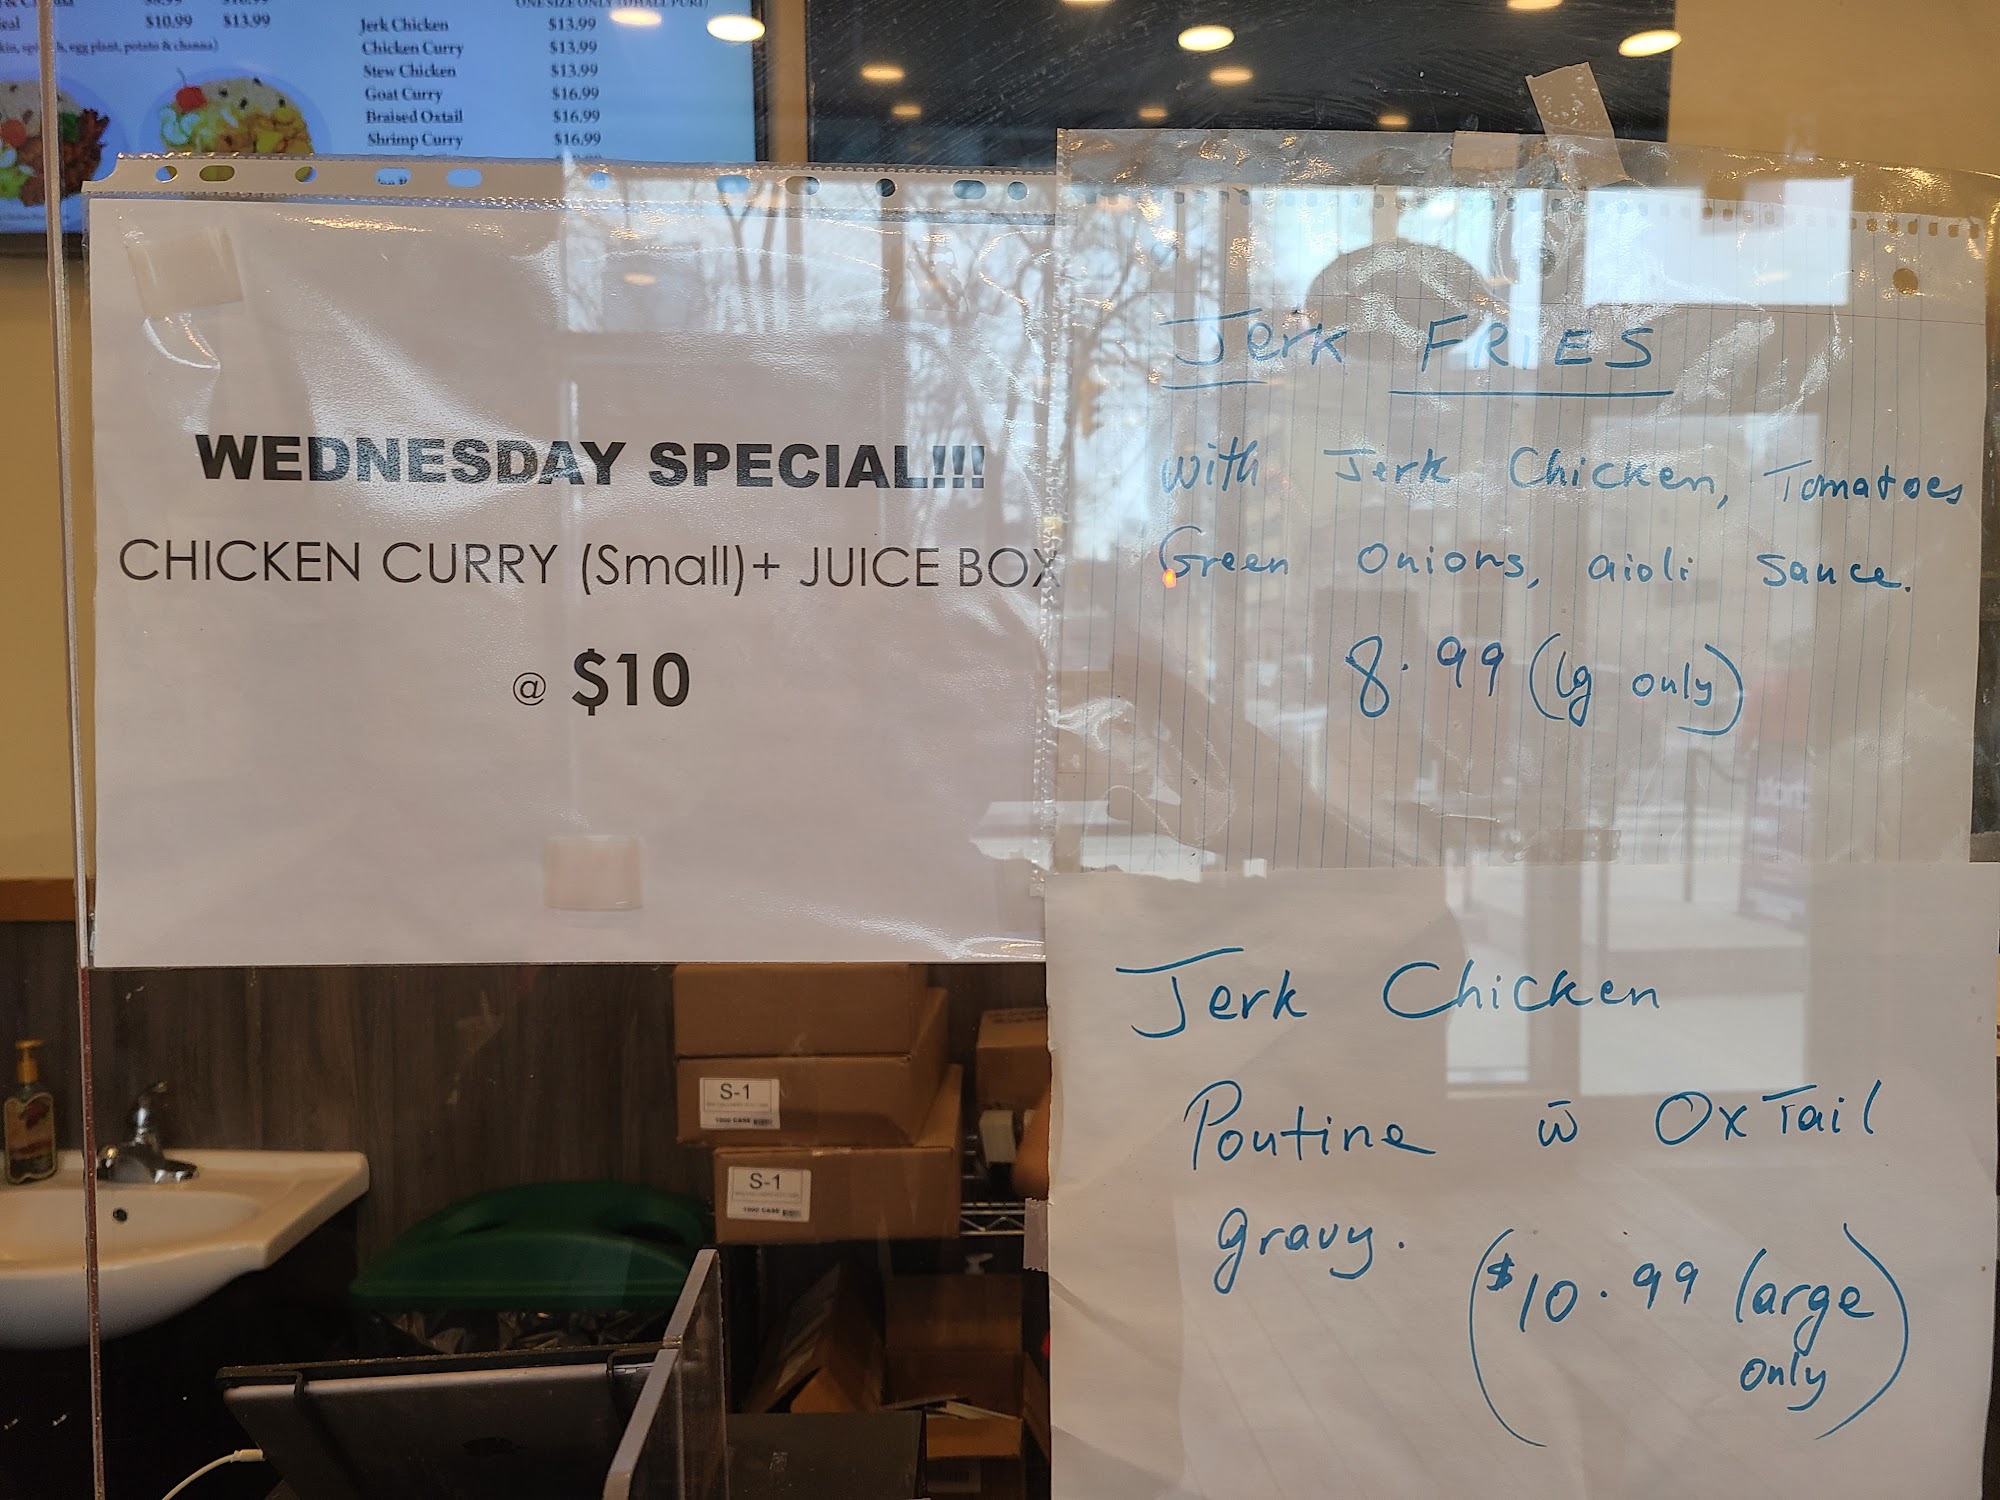 $10.99 $13.99
egg plant, potato & channa)
Jerk Chicken $13.99
Chicken Curry $13.99
Stew Chicken $13.99
Goat Curry $16.99
Braised Oxtail $16.99
Shrimp Curry $16.99
WEDNESDAY SPECIAL!!!
CHICKEN CURRY (Small)+ JUICE BOX
@ $10
Jerk FRIES
with Jerk Chicken, Tomatoes
Green Onions, aioli sauce.
8.99 (lg only)
Jerk Chicken
Poutine w̄ OxTail
gravy.
($10.99 large
only)
S-1
1000 CASE
S-1
1000 CASE